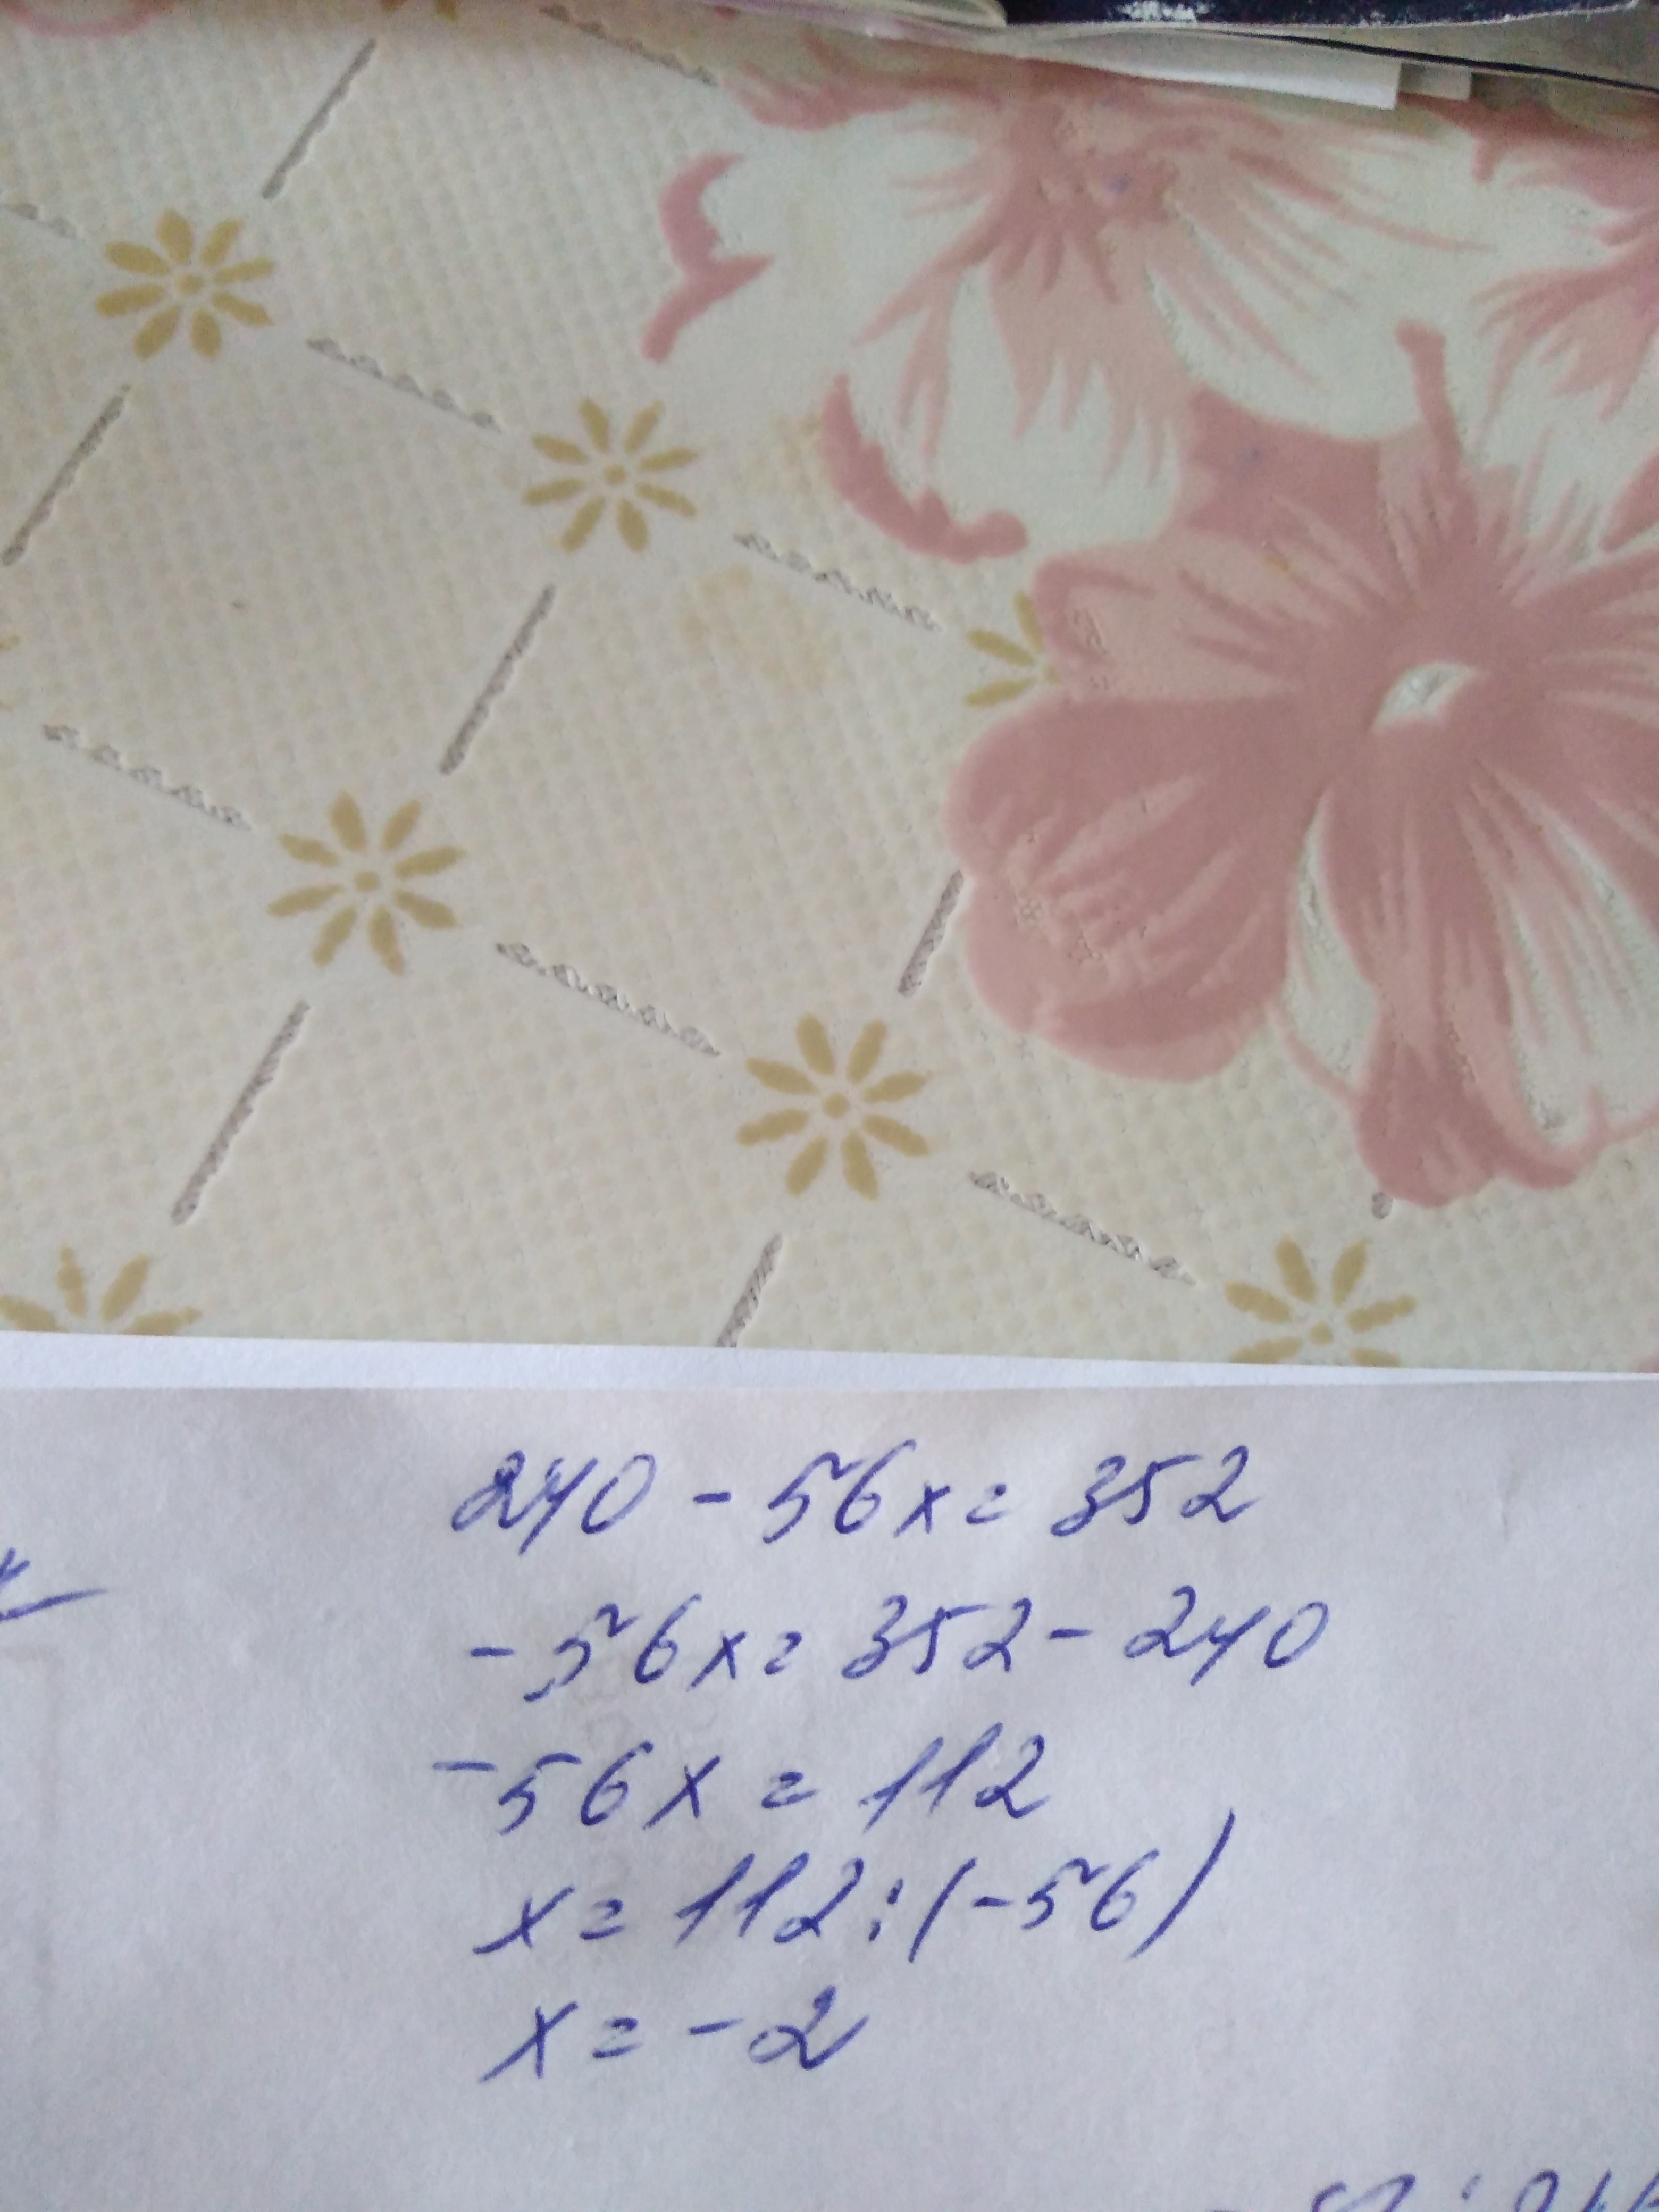 240 - 56x = 352
- 56x = 352 - 240
-56x = 112
x = 112 : (-56)
x = -2